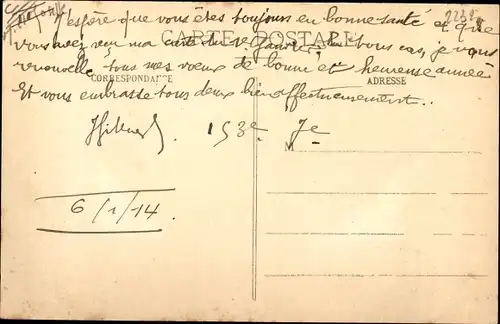 J'espère que vous êtes toujours en bonne santé et que
vous avez reçu ma carte du 1er Janvier, en tous cas, je vous
CARTE POSTALE
renouvelle tous mes vœux de bonne et heureuse année
CORRESPONDANCE
ADRESSE
Et vous embrasse tous deux bien affectueusement..
153e 7e
M
6/1/14.